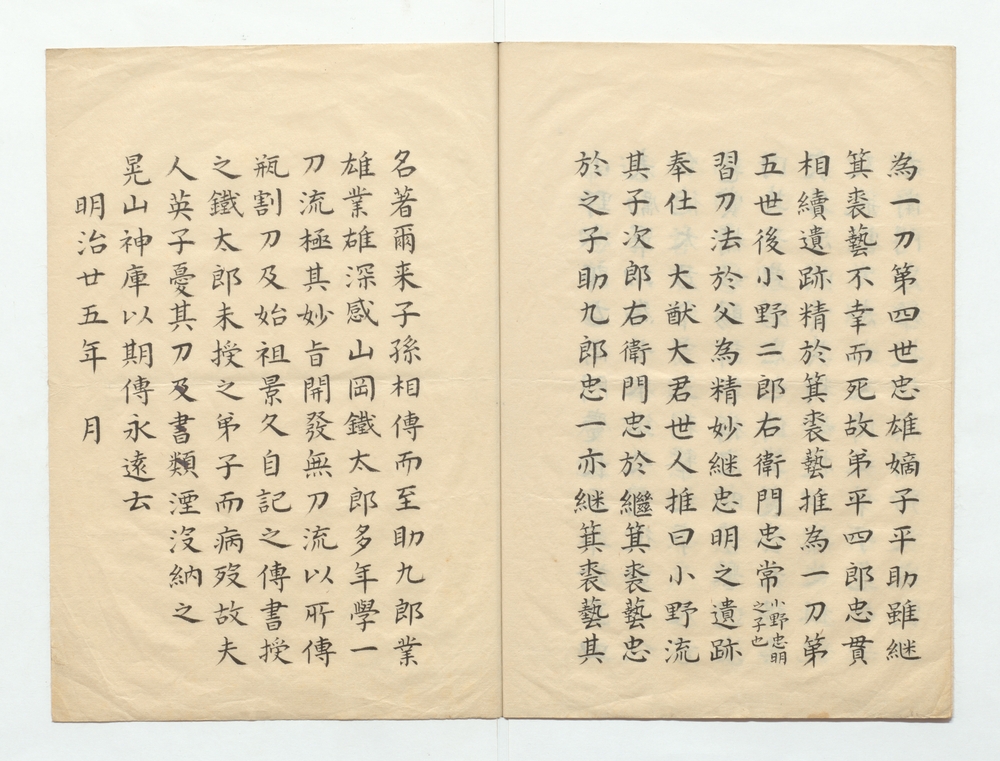 為一刀第四世忠雄嫡子平助雖継
箕裘藝不幸而死故弟平四郎忠貫
相續遺跡精於箕裘藝推為一刀第
五世後小野二郎右衛門忠常小野忠明之子也
習刀法於父為精妙継忠明之遺跡
奉仕 大猷大君世人推曰小野流
其子次郎右衛門忠於繼箕裘藝忠
於之子助九郎忠一亦継箕裘藝其
名著爾来子孫相傳而至助九郎業
雄業雄深感山岡鐵太郎多年學一
刀流極其妙旨開發無刀流以所傳
瓶割刀及始祖景久自記之傳書授
之鐵太郎未授之弟子而病歿故夫
人英子憂其刀及書類湮没納之
晃山神庫以期傳永遠云
明治廿五年 月